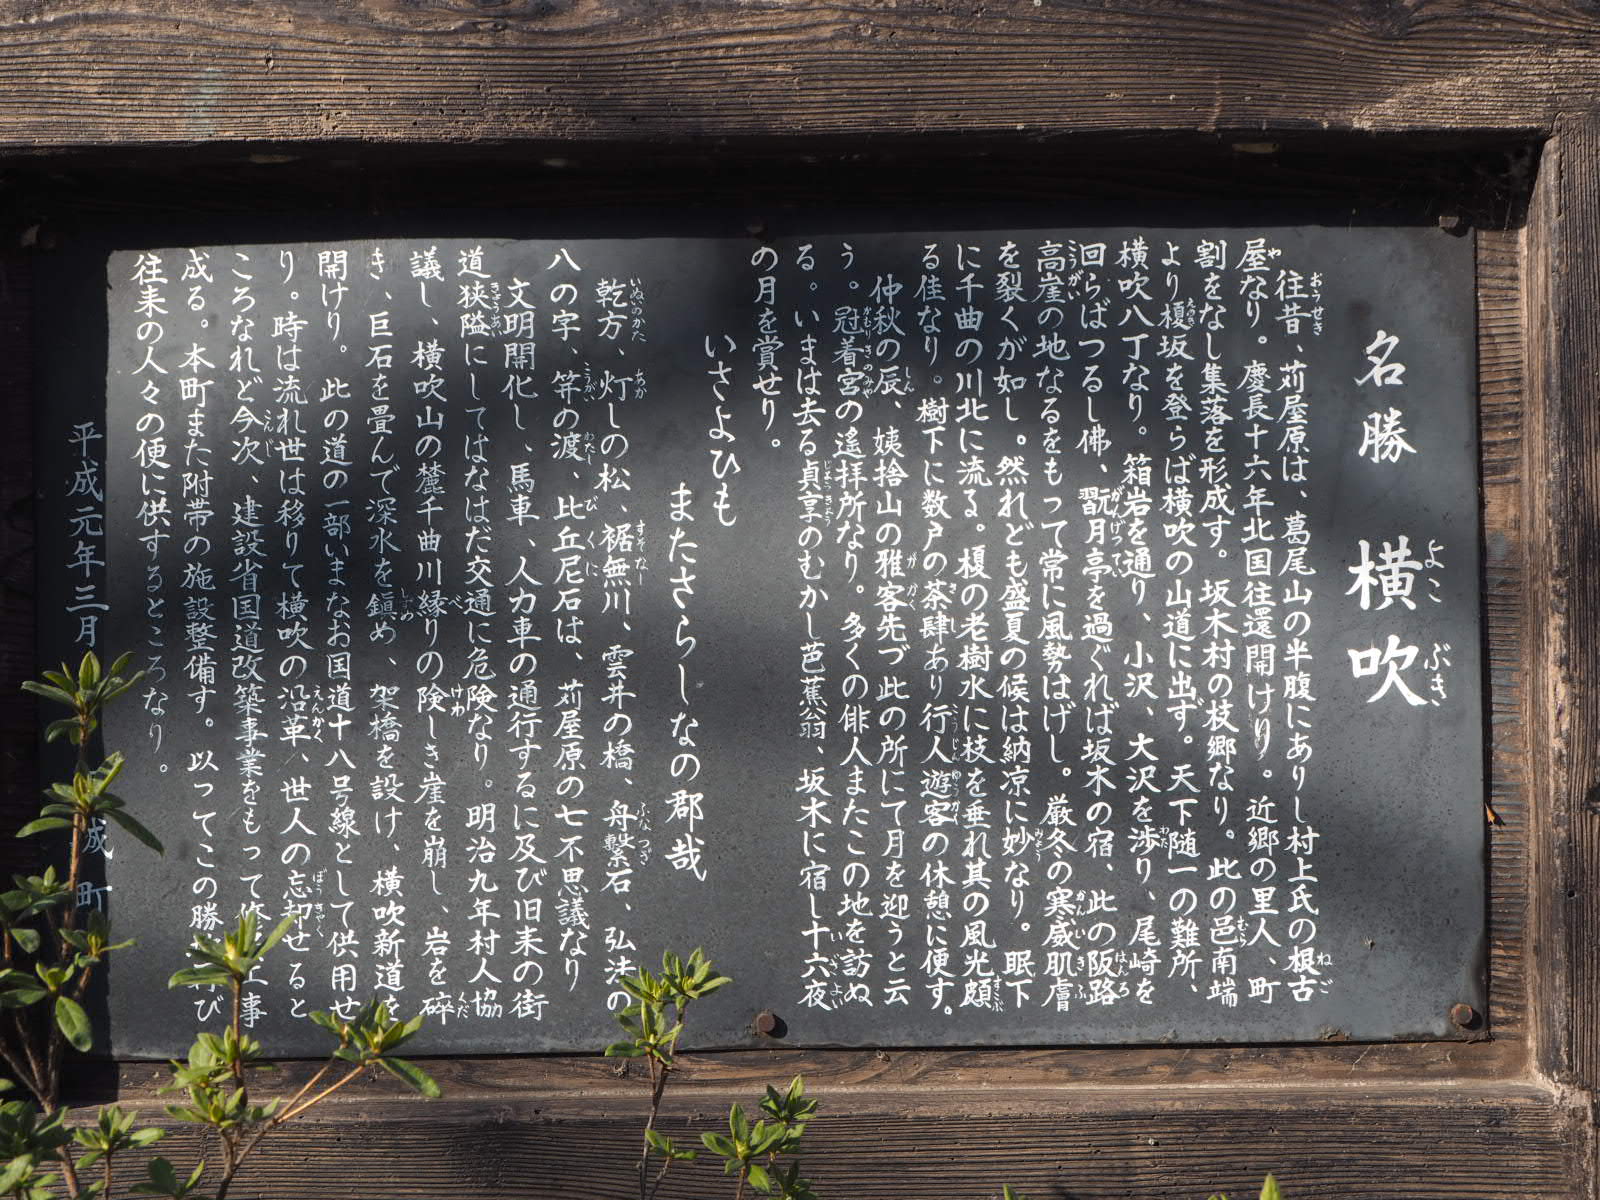 名勝 横吹
往昔、苅屋原は、葛尾山の半腹にありし村上氏の根古
屋なり。慶長十六年北国往還開けり。近郷の里人、町
割をなし集落を形成す。坂木村の枝郷なり。此の邑南端
より榎坂を登らば横吹の山道に出ず。天下随一の難所、
横吹八丁なり。箱岩を通り、小沢、大沢を渉り、尾崎を
回らばつるし佛、翫月亭を過ぐれば坂木の宿、此の阪路
高崖の地なるをもって常に風勢はげし。厳冬の寒威肌膚
を裂くが如し。然れども盛夏の候は納涼に妙なり。眠下
に千曲の川北に流る。榎の老樹水に枝を垂れ其の風光頗
る佳なり。樹下に数戸の茶肆あり行人遊客の休憩に便す。
仲秋の辰、姨捨山の雅客先づ此の所にて月を迎うと云
う。冠着宮の遙拝所なり。多くの俳人またこの地を訪ぬ
る。いまは去る貞享のむかし芭蕉翁、坂木に宿し十六夜
の月を賞せり。
いさよひも
またさらしなの郡哉
乾方、灯しの松、裾無川、雲井の橋、舟繋石、弘法の
八の字、笄の渡、比丘尼石は、苅屋原の七不思議なり
文明開化し、馬車、人力車の通行するに及び旧来の街
道狭隘にしてはなはだ交通に危険なり。明治九年村人協
議し、横吹山の麓千曲川縁りの険しき崖を崩し、岩を砕
き、巨石を畳んで深水を鎭め、架橋を設け、横吹新道を
開けり。此の道の一部いまなお国道十八号線として供用せ
り。時は流れ世は移りて横吹の沿革、世人の忘却せると
ころなれど今次、建設省国道改築事業をもって工事
成る。本町また附帯の施設整備す。以ってこの勝び
往来の人々の便に供するところなり。
平成元年三月 城町